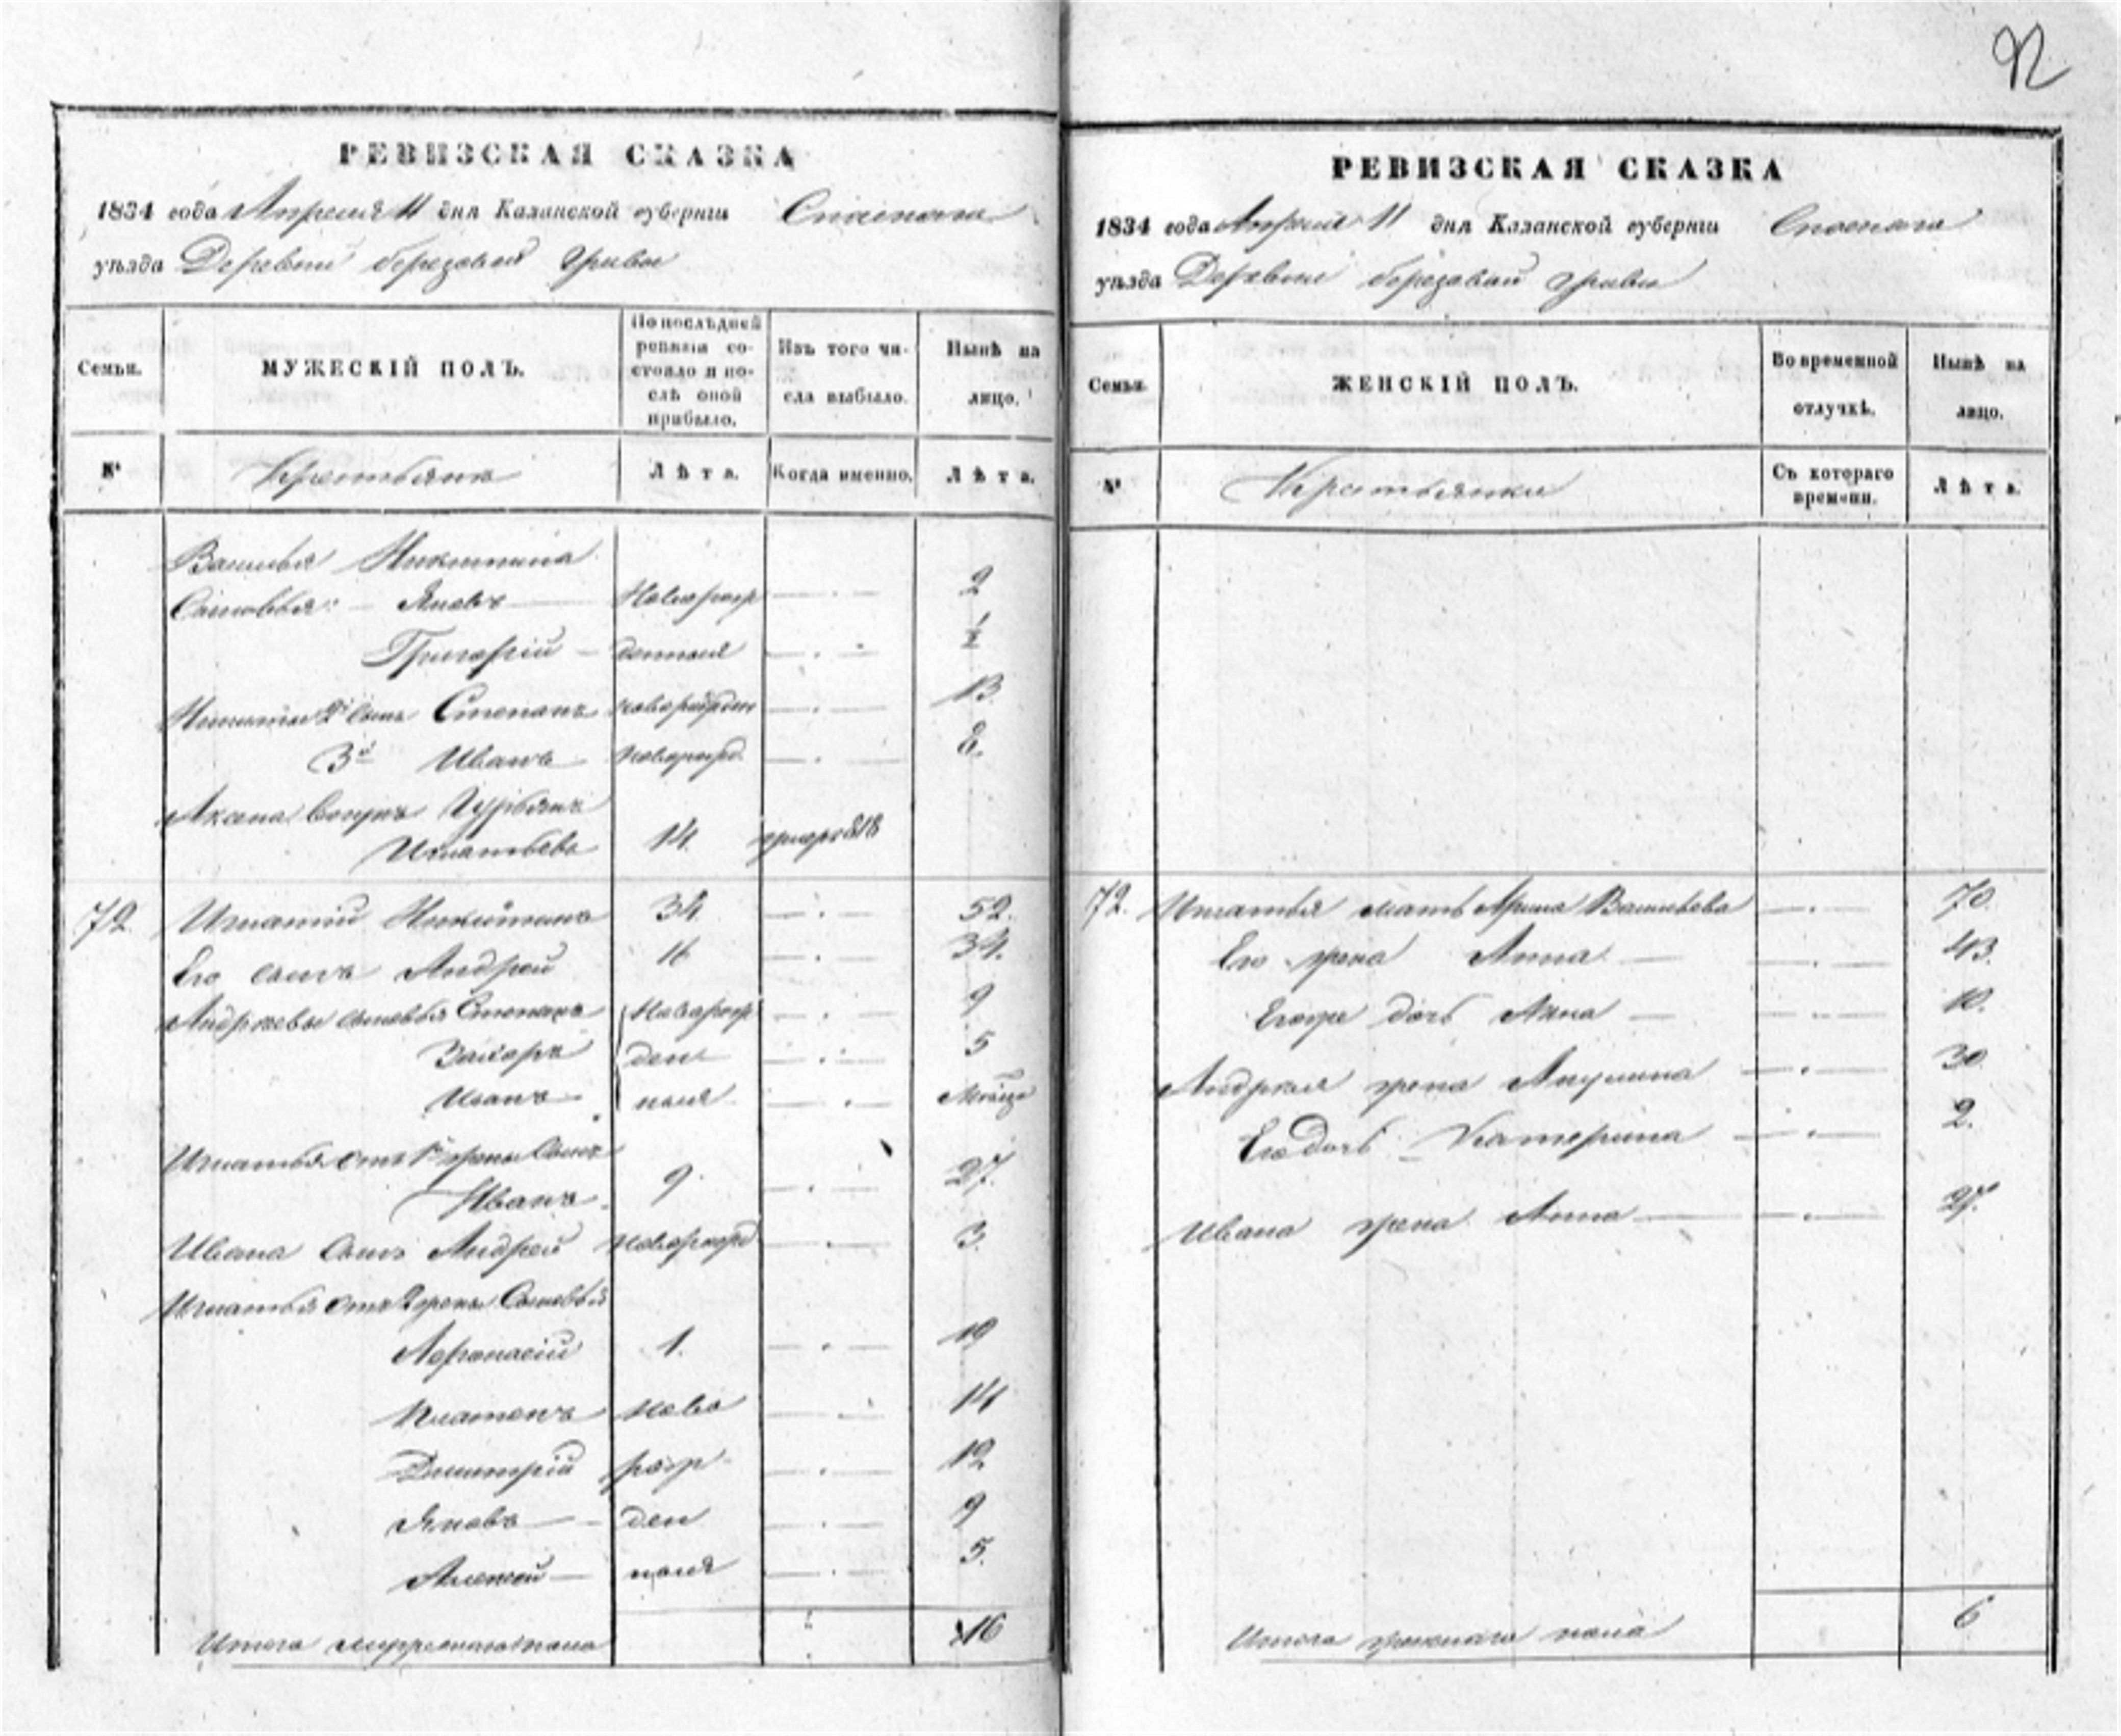 92
РЕВИЗСКАЯ СКАЗКА
1834 года Апреля 11 дня Казанской губернiи Спаскаго
уѣзда Деревни березовой Гривы
Семьи.
МУЖЕСКIЙ ПОЛЪ.
По послѣдней ревизiи состояло и послѣ оной прибыло.
Изъ того числа выбыло.
Нынѣ на лицо.
№
Крестьянъ
Лѣта.
Когда именно.
Лѣта.
Василья Никитина
Сыновья: Яковъ Новорож 2
Григорiй денныя 1/2
2й сынъ Степанъ новорожден 13
3й Иванъ новорожд. 8.
внукъ
Игнатьевъ 14. 818
72. Игнатiй Никитинъ 34. 52.
Его сынъ Андрей 16 34.
Андреевы сыновья Степанъ Новорож 9
Захаръ ден 5
Иванъ ныя
Игнатья отъ 1й жены сынъ
Иванъ 9. 27.
Ивана сынъ Андрей новорожд 3.
Игнатья отъ 2 жены Сыновья
Афонасiй 1. 19
Платонъ ново 14
Димитрiй рож 12
Яковъ ден 9
Алексей ныя 5.
Итого мужескаго пола 16
РЕВИЗСКАЯ СКАЗКА
1834 года Апреля 11 дня Казанской губернiи Спаскаго
уѣзда Деревни березовой гривы
Семьи.
ЖЕНСКIЙ ПОЛЪ.
Во временной отлучкѣ.
Нынѣ на лицо.
№
Крестьянки
Съ котораго времени.
Лѣта.
72. Игнатья мать Арина Васильева 70.
Его жена Анна 43.
Егоже дочь Анна 10.
Андрея жена Акулина 30
Его дочь Катерина 2.
Ивана жена Анна 27.
Итого женскаго пола 6